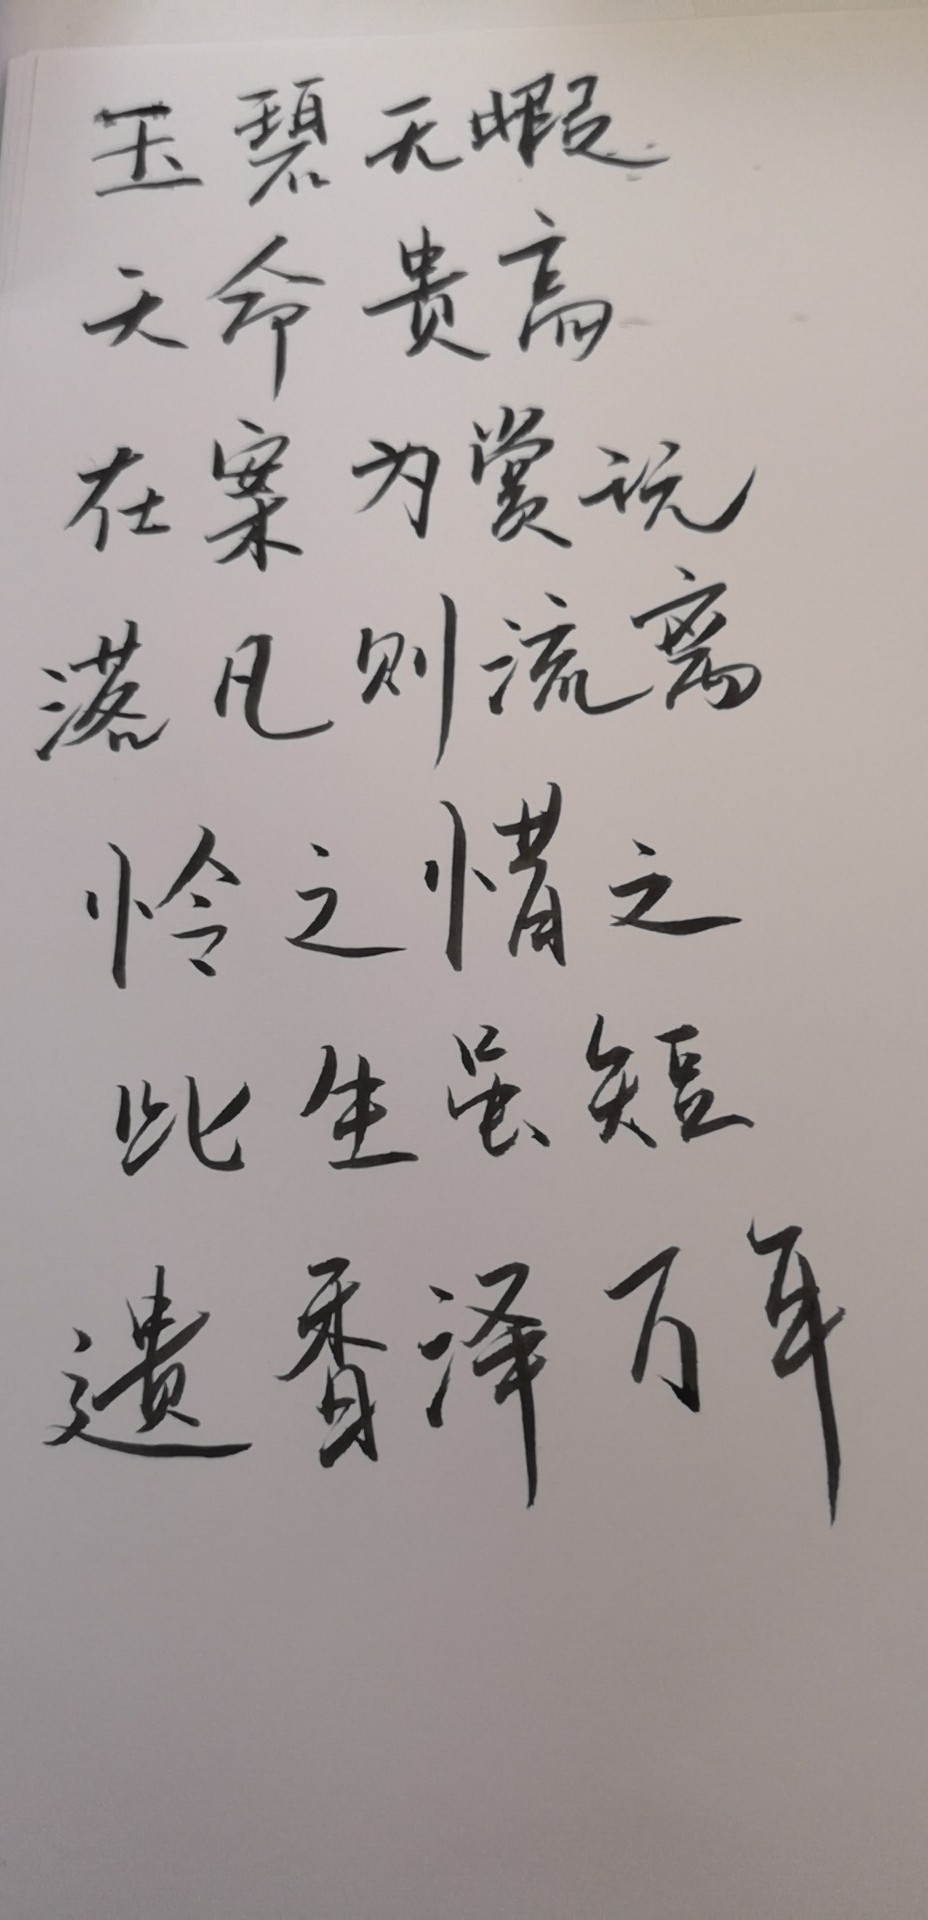 玉碧无暇
天命贵高
在案为赏玩
落凡则流离
怜之惜之
此生虽短
遗香泽万年